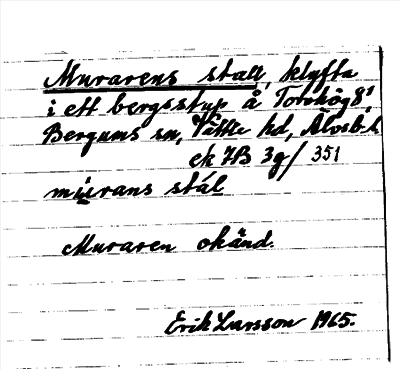 Murarens stall, klyfta
i ett bergsstup å Torshög 8¹,
Bergums sn, Vättle hd, Älvsb. l.
ek 7B 3g/351
murans stál
Muraren okänd.
Erik Larsson 1965.